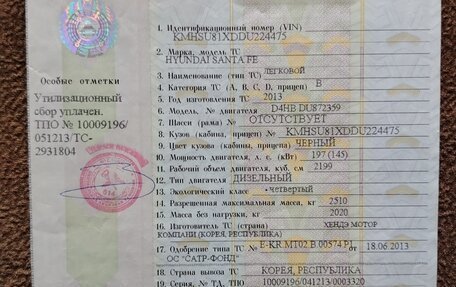 Особые отметки
Утилизационный
сбор уплачен.
ТПО № 10009196/
051213/ТС-
2931804
1. Идентификационный номер (VIN)
KMHSU81XDDU224475
2. Марка, модель ТС
HYUNDAI SANTA FE
3. Наименование (тип ТС) ЛЕГКОВОЙ
4. Категория ТС (A, B, C, D, прицеп) B
5. Год изготовления ТС 2013
6. Модель, № двигателя D4HB DU872359
7. Шасси (рама) № ОТСУТСТВУЕТ
8. Кузов (кабина, прицеп) № KMHSU81XDDU224475
9. Цвет кузова (кабины, прицепа) ЧЕРНЫЙ
10. Мощность двигателя, л. с. (кВт) 197 (145)
11. Рабочий объем двигателя, куб. см 2199
12. Тип двигателя ДИЗЕЛЬНЫЙ
13. Экологический класс четвертый
14. Разрешенная максимальная масса, кг 2510
15. Масса без нагрузки, кг 2020
16. Изготовитель ТС (страна) ХЕНДЭ МОТОР
КОМПАНИ (КОРЕЯ, РЕСПУБЛИКА)
17. Одобрение типа ТС № E-KR.MT02.B.00574.P1 от 18.06.2013
ОС "САТР-ФОНД"
18. Страна вывоза ТС КОРЕЯ, РЕСПУБЛИКА
19. Серия, № ТД, ТПО 10009196/041213/0003320